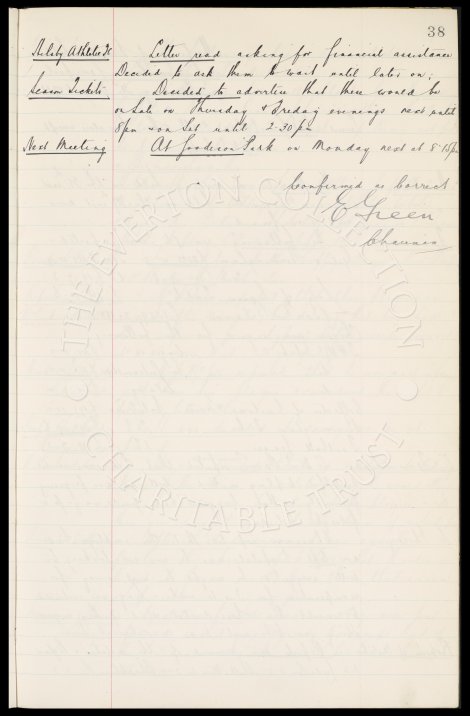 38
Athletic Fc Letter read asking for financial assistance
Decided to ask them to wait until later on.
Season Tickets Decided to advertise that these would be
on Sale on Thursday & Friday evenings next until
8pm & on Sat until 2-30 pm
Next Meeting At Goodison Park on Monday next at 5-15pm
Confirmed as Correct
E Green
Chairman
THE EVERTON COLLECTION
CHARITABLE TRUST